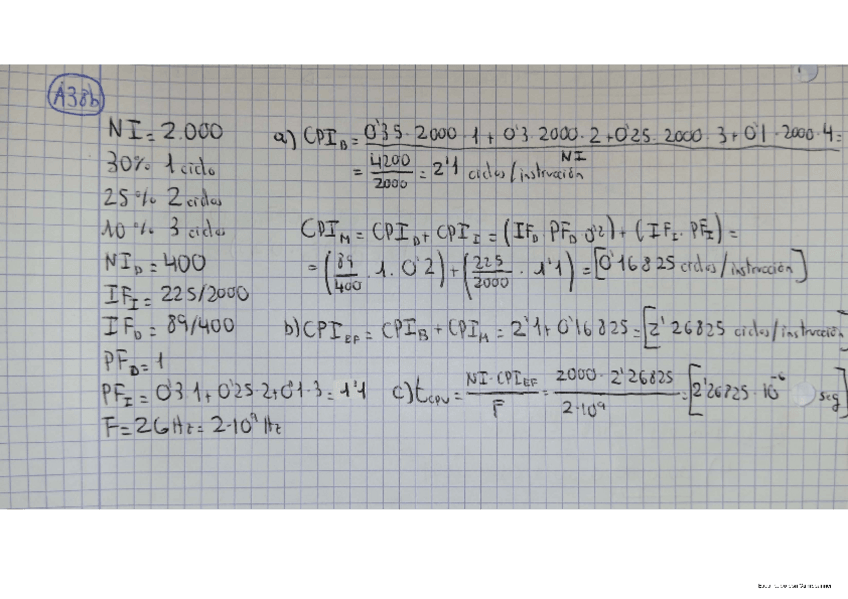 A38b
NI = 2.000
30% 1 ciclo
25% 2 ciclos
10% 3 ciclos
NI_D = 400
IF_I = 225/2000
IF_D = 89/400
PF_D = 1
PF_I = 0'3·1+0'25·2+0'1·3 = 1'1
F = 2GHz = 2·10⁹ Hz
a) CPI_B = 0'35·2000·1 + 0'3·2000·2 + 0'25·2000·3 + 0'1·2000·4 =
NI
= 4200/2000 = 2'1 ciclos/instrucción
CPI_M = CPI_D + CPI_I = (IF_D·PF_D·0'2) + (IF_I·PF_I) =
= (89/400 · 1 · 0'2) + (225/2000 · 1'1) = [0'16825 ciclos/instrucción]
b) CPI_EF = CPI_B + CPI_M = 2'1 + 0'16825 = [2'26825 ciclos/instrucción]
c) t_CPU = NI·CPI_EF/F = 2000·2'26825/2·10⁹ = [2'26825·10⁻⁶ seg]